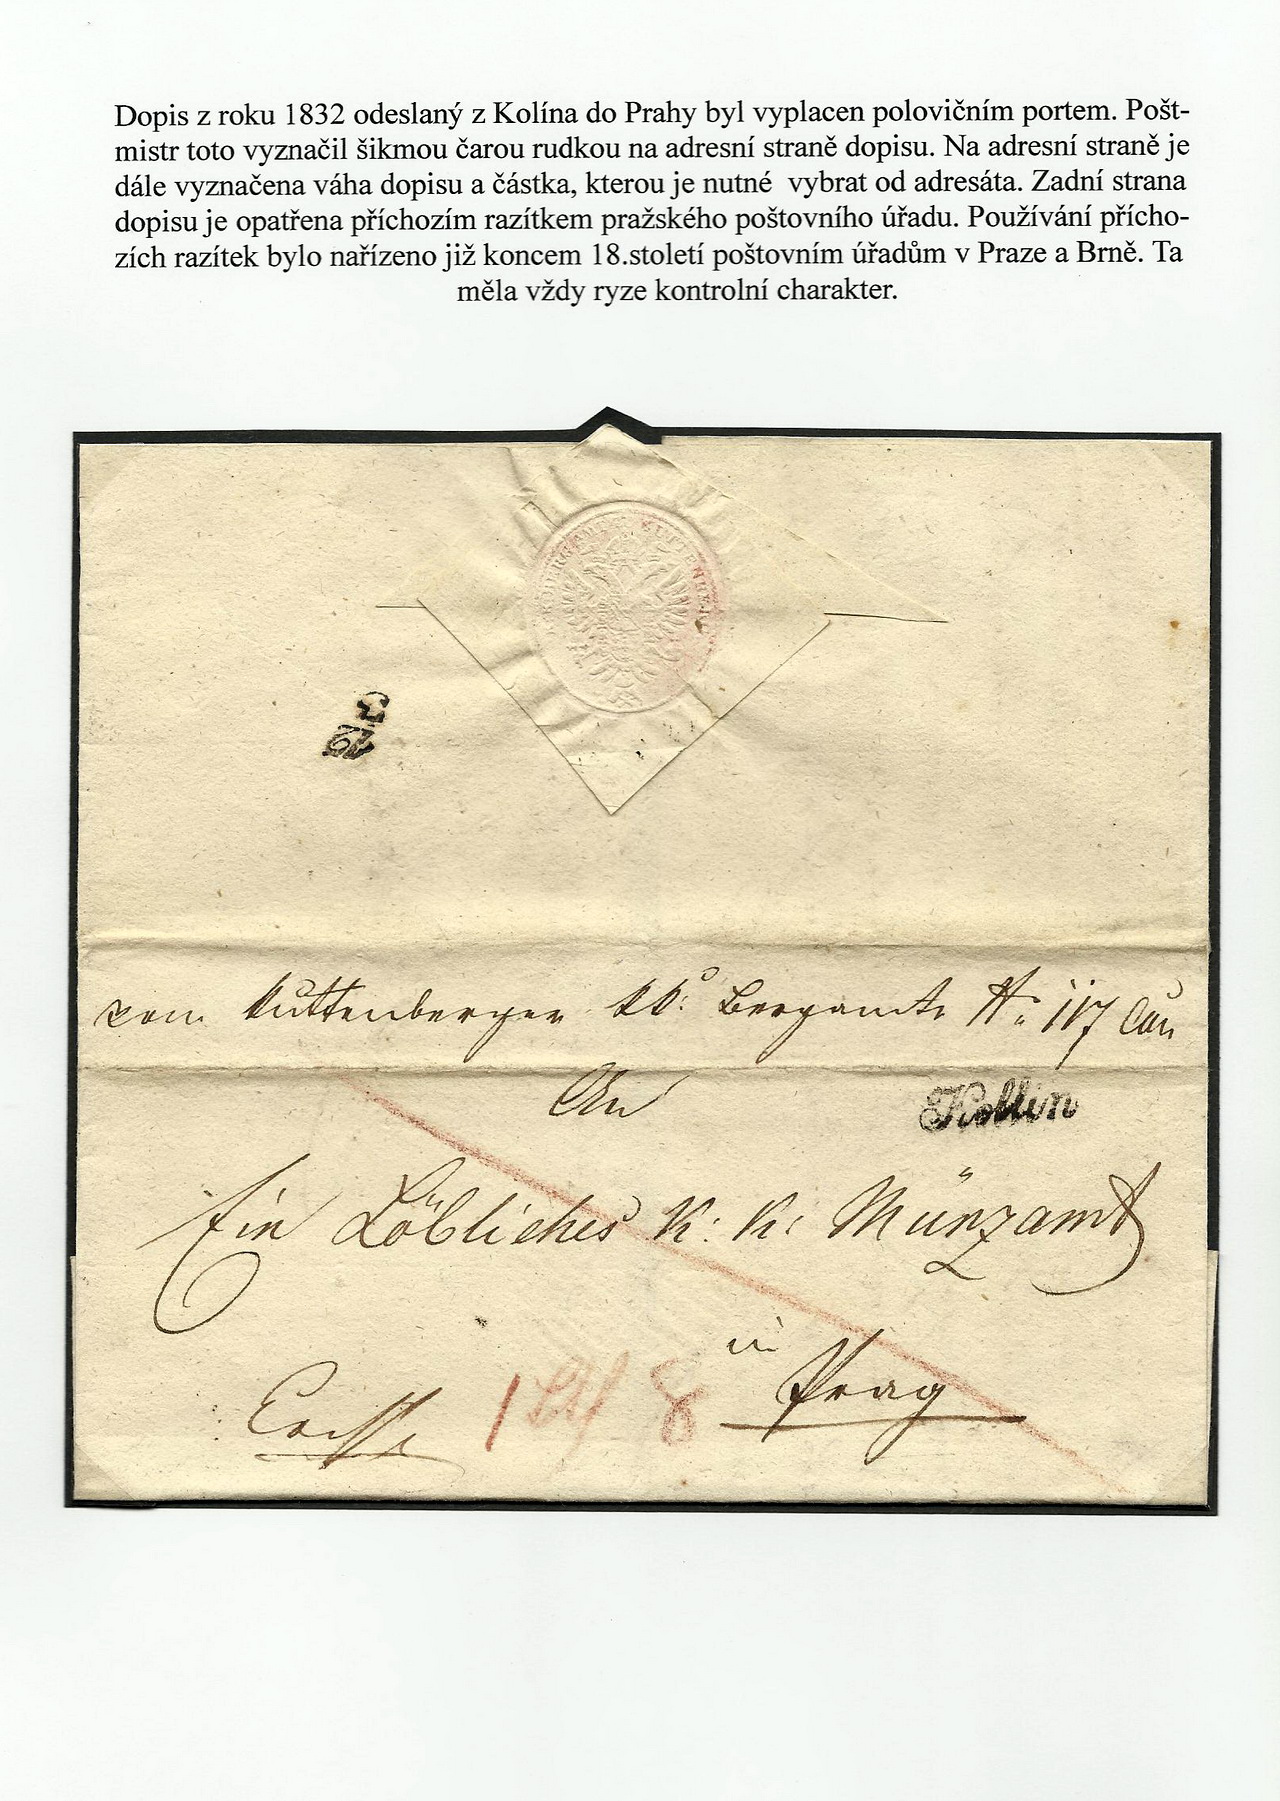 Dopis z roku 1832 odeslaný z Kolína do Prahy byl vyplacen polovičním portem. Pošt-
mistr toto vyznačil šikmou čarou rudkou na adresní straně dopisu. Na adresní straně je
dále vyznačena váha dopisu a částka, kterou je nutné vybrat od adresáta. Zadní strana
dopisu je opatřena příchozím razítkem pražského poštovního úřadu. Používání přícho-
zích razítek bylo nařízeno již koncem 18.století poštovním úřadům v Praze a Brně. Ta
měla vždy ryze kontrolní charakter.
KUTTENBERG
vom Kuttenberger kk: Bergamte N: 117
An
Kollin
Ein Löbliches K: K: Münzamt
in
1 8 Prag